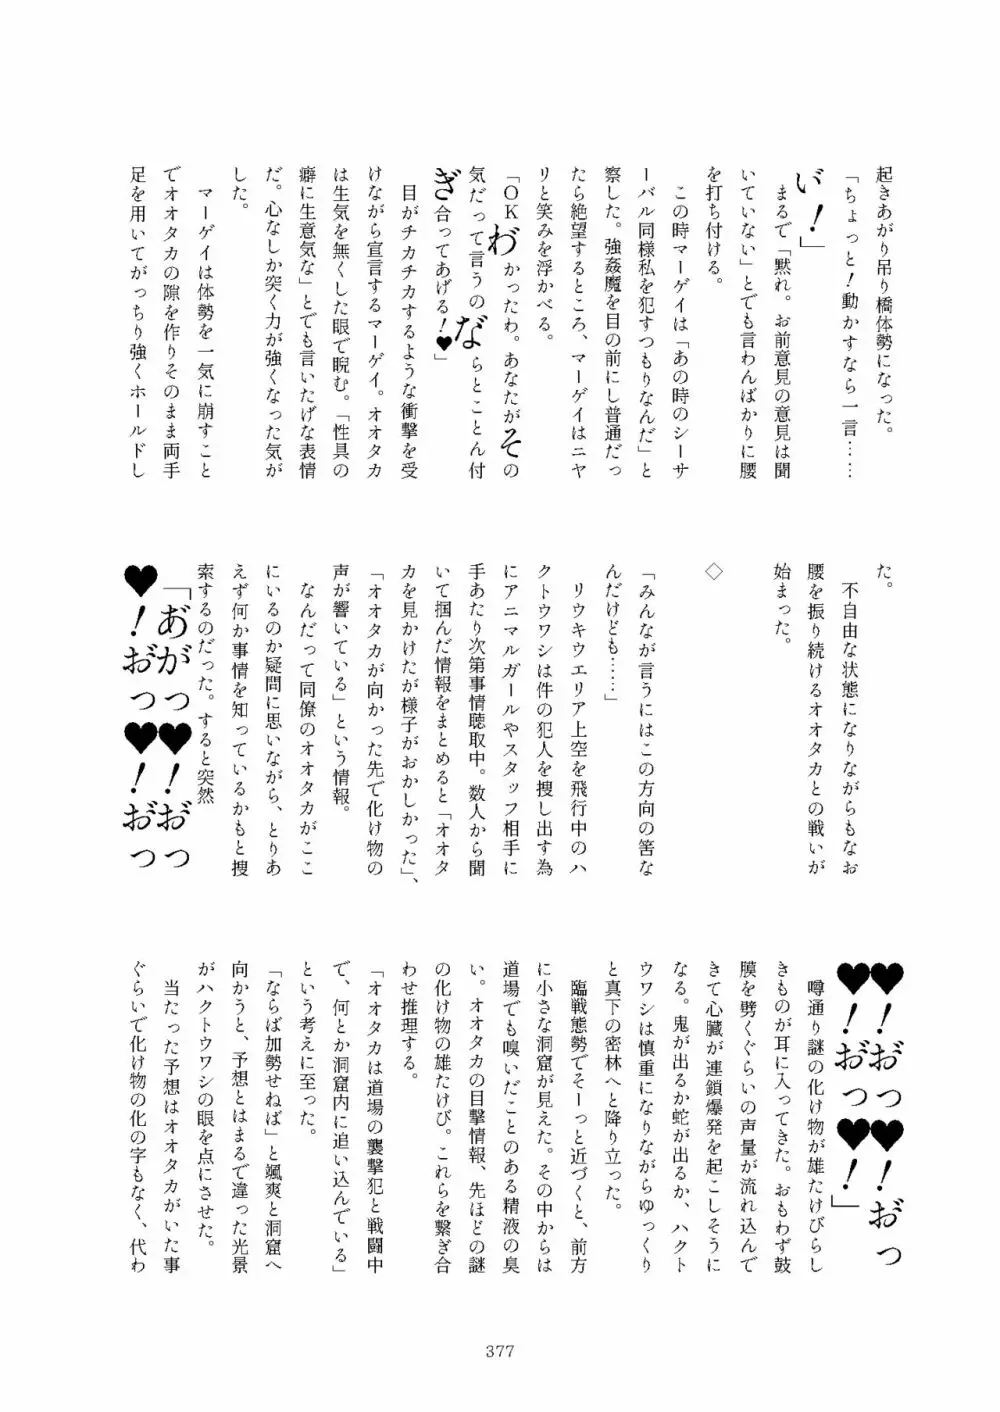 起きあがり吊り橋体勢になった。
「ちょっと！動かすなら一言……
い゛！」
まるで「黙れ。お前意見の意見は聞
いていない」とでも言わんばかりに腰
を打ち付ける。
この時マーゲイは「あの時のシーサ
ーバル同様私を犯すつもりなんだ」と
察した。強姦魔を目の前にし普通だっ
たら絶望するところ、マーゲイはニヤ
リと笑みを浮かべる。
「OKわ゛かったわ。あなたがその
気だって言うのな゛らとことん付
ぎ合ってあげる！♥」
目がチカチカするような衝撃を受
けながら宣言するマーゲイ。オオタカ
は生気を無くした眼で睨む。「性具の
癖に生意気な」とでも言いたげな表情
だ。心なしか突く力が強くなった気が
した。
マーゲイは体勢を一気に崩すこと
でオオタカの隙を作りそのまま両手
足を用いてがっちり強くホールドし
た。
不自由な状態になりながらもなお
腰を振り続けるオオタカとの戦いが
始まった。
◇
「みんなが言うにはこの方向の筈な
んだけども……」
リウキウエリア上空を飛行中のハ
クトウワシは件の犯人を捜し出す為
にアニマルガールやスタッフ相手に
手あたり次第事情聴取中。数人から聞
いて掴んだ情報をまとめると「オオタ
カを見かけたが様子がおかしかった」、
「オオタカが向かった先で化け物の
声が響いている」という情報。
なんだって同僚のオオタカがここ
にいるのか疑問に思いながら、とりあ
えず何か事情を知っているかもと捜
索するのだった。すると突然
「あ゛がっ♥！お゛っ
♥！お゛っ♥！お゛っ
♥！お゛っ♥！お゛っ
♥！お゛っ♥！」
噂通り謎の化け物が雄たけびらし
きものが耳に入ってきた。おもわず鼓
膜を劈くぐらいの声量が流れ込んで
きて心臓が連鎖爆発を起こしそうに
なる。鬼が出るか蛇が出るか、ハクト
ウワシは慎重になりながらゆっくり
と真下の密林へと降り立った。
臨戦態勢でそーっと近づくと、前方
に小さな洞窟が見えた。その中からは
道場でも嗅いだことのある精液の臭
い。オオタカの目撃情報、先ほどの謎
の化け物の雄たけび。これらを繋ぎ合
わせ推理する。
「オオタカは道場の襲撃犯と戦闘中
で、何とか洞窟内に追い込んでいる」
という考えに至った。
「ならば加勢せねば」と颯爽と洞窟へ
向かうと、予想とはまるで違った光景
がハクトウワシの眼を点にさせた。
当たった予想はオオタカがいた事
ぐらいで化け物の化の字もなく、代わ
377